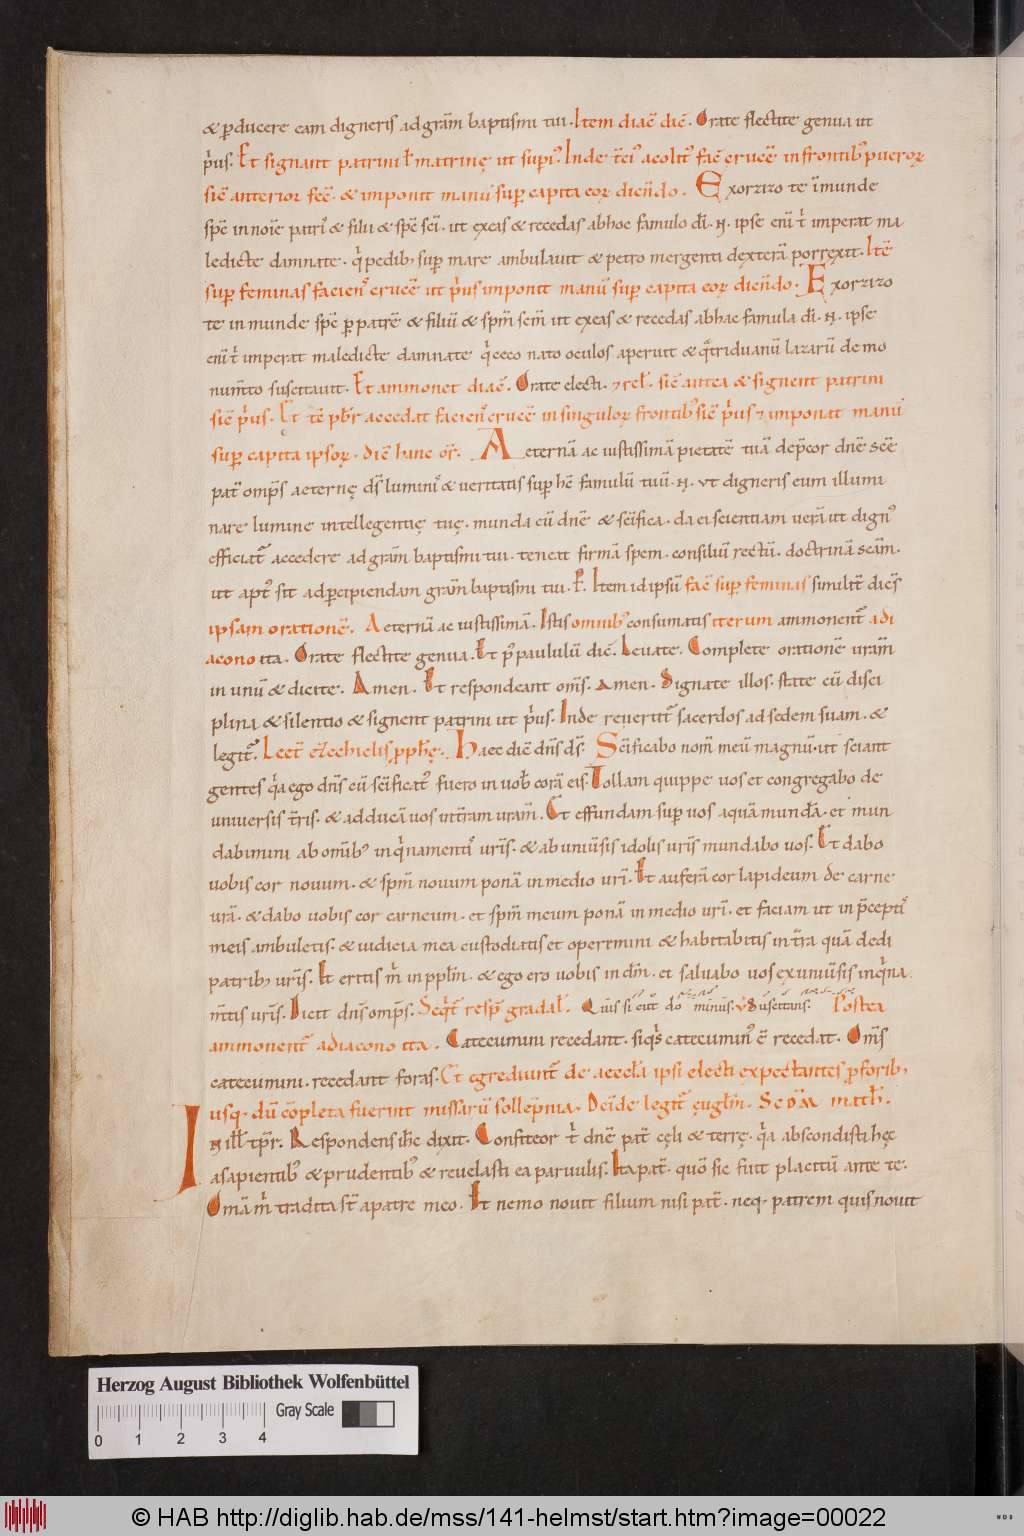 & ꝑducere eam digneris ad grãm baptismi tui. Item diac̃ dic̃. Orate flectite genua ut
p̾us. Et signant patrini ł matrinę ut supˀ. Inde t̃ciˀ acolitˀ fac̃ crucẽ in frontibˀ pueroꝝ
sic̃ anterior fec̃. & imponit manũ suꝑ capita eoꝝ dicñdo. Exorzizo te ĩmunde
sp̃c in noĩe patrˀ & filii & sp̃c sc̃i. ut exeas & recedas ab hoc famulo dĩ. N. ipse eni t̾ imperat ma
ledicte damnate. q̾ pedibˀ suꝑ mare ambulauit & petro mergenti dexterã porrexit. Itẽ
suꝑ feminas facienˀ crucẽ ut p̾us imponit manũ suꝑ capita eoꝝ dicñdo. Exorzizo
te inmunde sp̃c ꝑ patrẽ & filiũ & sp̃m sc̃m ut exeas & recedas ab hac famula dĩ. N. ipse
eni t̾ imperat maledicte damnate q̾ ceco nato oculos aperuit & q̃triduanũ lazarũ de mo
num̃to suscitauit. Et ammonet diac̃. Orate electi. ⁊ rel̃. sic̃ antea & signent patrini
sic̃ p̾us. Et tẽ pb̃r accedat facienˀ crucẽ in singuloꝝ frontibˀ sic̃ p̾us ⁊ imponat manũ
suꝑ capita ipsoꝝ. dic̃ hanc or̃. Aeternã ac iustissimã pietatẽ tuã dep̃cor dñe sc̃e
pat̃ omp̃s aeternę ds̃ luminˀ & ueritatis suꝑ hc̃ famulũ tuũ. N. ut digneris eum illumi
nare lumine intellegentię tuę. munda eũ dñe & sc̃ifica. da ei scientiam uerã ut dignˀ
efficiat̃ accedere ad grãm baptismi tui. teneat firmã spem. consiliũ rectũ. doctrinã scãm.
ut aptˀ sit ad ꝑcipiendam grãm baptismi tui. P. Item id ipsũ fac̃ suꝑ feminas similit̃ dicẽs
ipsam orationẽ. Aeternã ac iustissimã. Istis omnibˀ consumatis iterum ammonent̃ a di
acono ita. Orate flectite genua. Et pˀ paululũ dic̃. Leuate. Complete orationẽ uram̃
in unũ & dicite. Amen. Et respondeant oms̃. Amen. Signate illos. state cũ disci
plina & silentio & signent patrini ut p̾us. Inde reuertit̃ sacerdos ad sedem suam. &
legit̃. Lect̃ ezechielis ꝓph̃ę. Haec dic̃ dñs ds̃. Sc̃ificabo nom̃ meũ magnũ. ut sciant
gentes q̾a ego dñs cũ sc̃ificatˀ fuero in uob̃ corã eis. Tollam quippe uos et congregabo de
uniuersis t̃ris. & adducã uos in t̃ram uram̃. Et effundam suꝑ uos aquã mundã. et mun
dabimini ab omĩbˀ inq̾namentˀ urĩs. & ab uniũsis idolis urĩs mundabo uos. Et dabo
uobis cor nouum. & sp̃m nouum ponã in medio urĩ. Et auferã cor lapideum de carne
urã. & dabo uobis cor carneum. et sp̃m meum ponã in medio urĩ. et faciam ut in p̃ceptˀ
meis ambuletis. & iudicia mea custodiatis et operemini & habitabitis in t̃ra quã dedi
patribˀ urĩs. Et eritis m̾ in ppl̃m. & ego ero uobis in dm̃. et saluabo uos ex uniũsis inq̾na
m̃tis urĩs. Dicit dñs omp̃s. Seq̾t̃ resp̃ gradal̃. Postea
ammonent̃ a diacono ita. Catecumini recedant. siq̾s catecuminˀ ẽ recedat. Oms̃
catecumini. recedant foras. Et egrediunt̃ de aeccl̃a ipsi electi expectantes p̃ foribˀ
usq. dũ cõpleta fuerint missarũ sollepnia. Deĩde legit̃ ęugl̃m. Scdm̃ math̃.
IN ill̃ tp̃r. Respondens ih̃c dixit. Confiteor t̾ dñe pat̃ cęli & terrę. q̾a abscondisti hęc
a sapientibˀ & prudentibˀ & reuelasti ea paruulis. Ita pat̃. quõ sic fuit placitũ ante te.
Omã m̾ tradita st̃ a patre meo. Et nemo nouit filium nisi pat̃. neq. patrem quis nouit
Herzog August Bibliothek Wolfenbüttel
Gray Scale
0 1 2 3 4
© HAB http://diglib.hab.de/mss/141-helmst/start.htm?image=00022